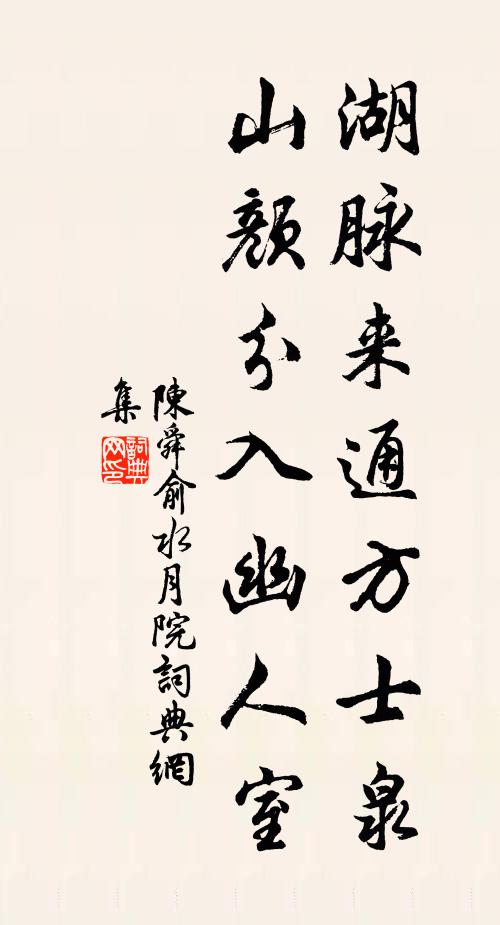 湖脉来通方士泉
山顏分入幽人室
陳舜俞水月院詞典網
集
詞典
网印